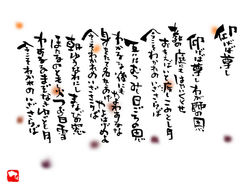 仰げば尊し
仰げば尊し わが師の恩
教の庭にも はやいくとせ
おもえばいと疾し このとし月
今こそわかれめ いざさらば
互にむつみし 日ごろの恩
わかるる後にも やよわするな
身をたて名をあげ やよはげめよ
今こそわかれめ いざさらば
朝ゆうなれにし まなびの窓
ほたるのともし火 つむ白雪
わするるまぞなき ゆくとし月
今こそわかれめ いざさらば